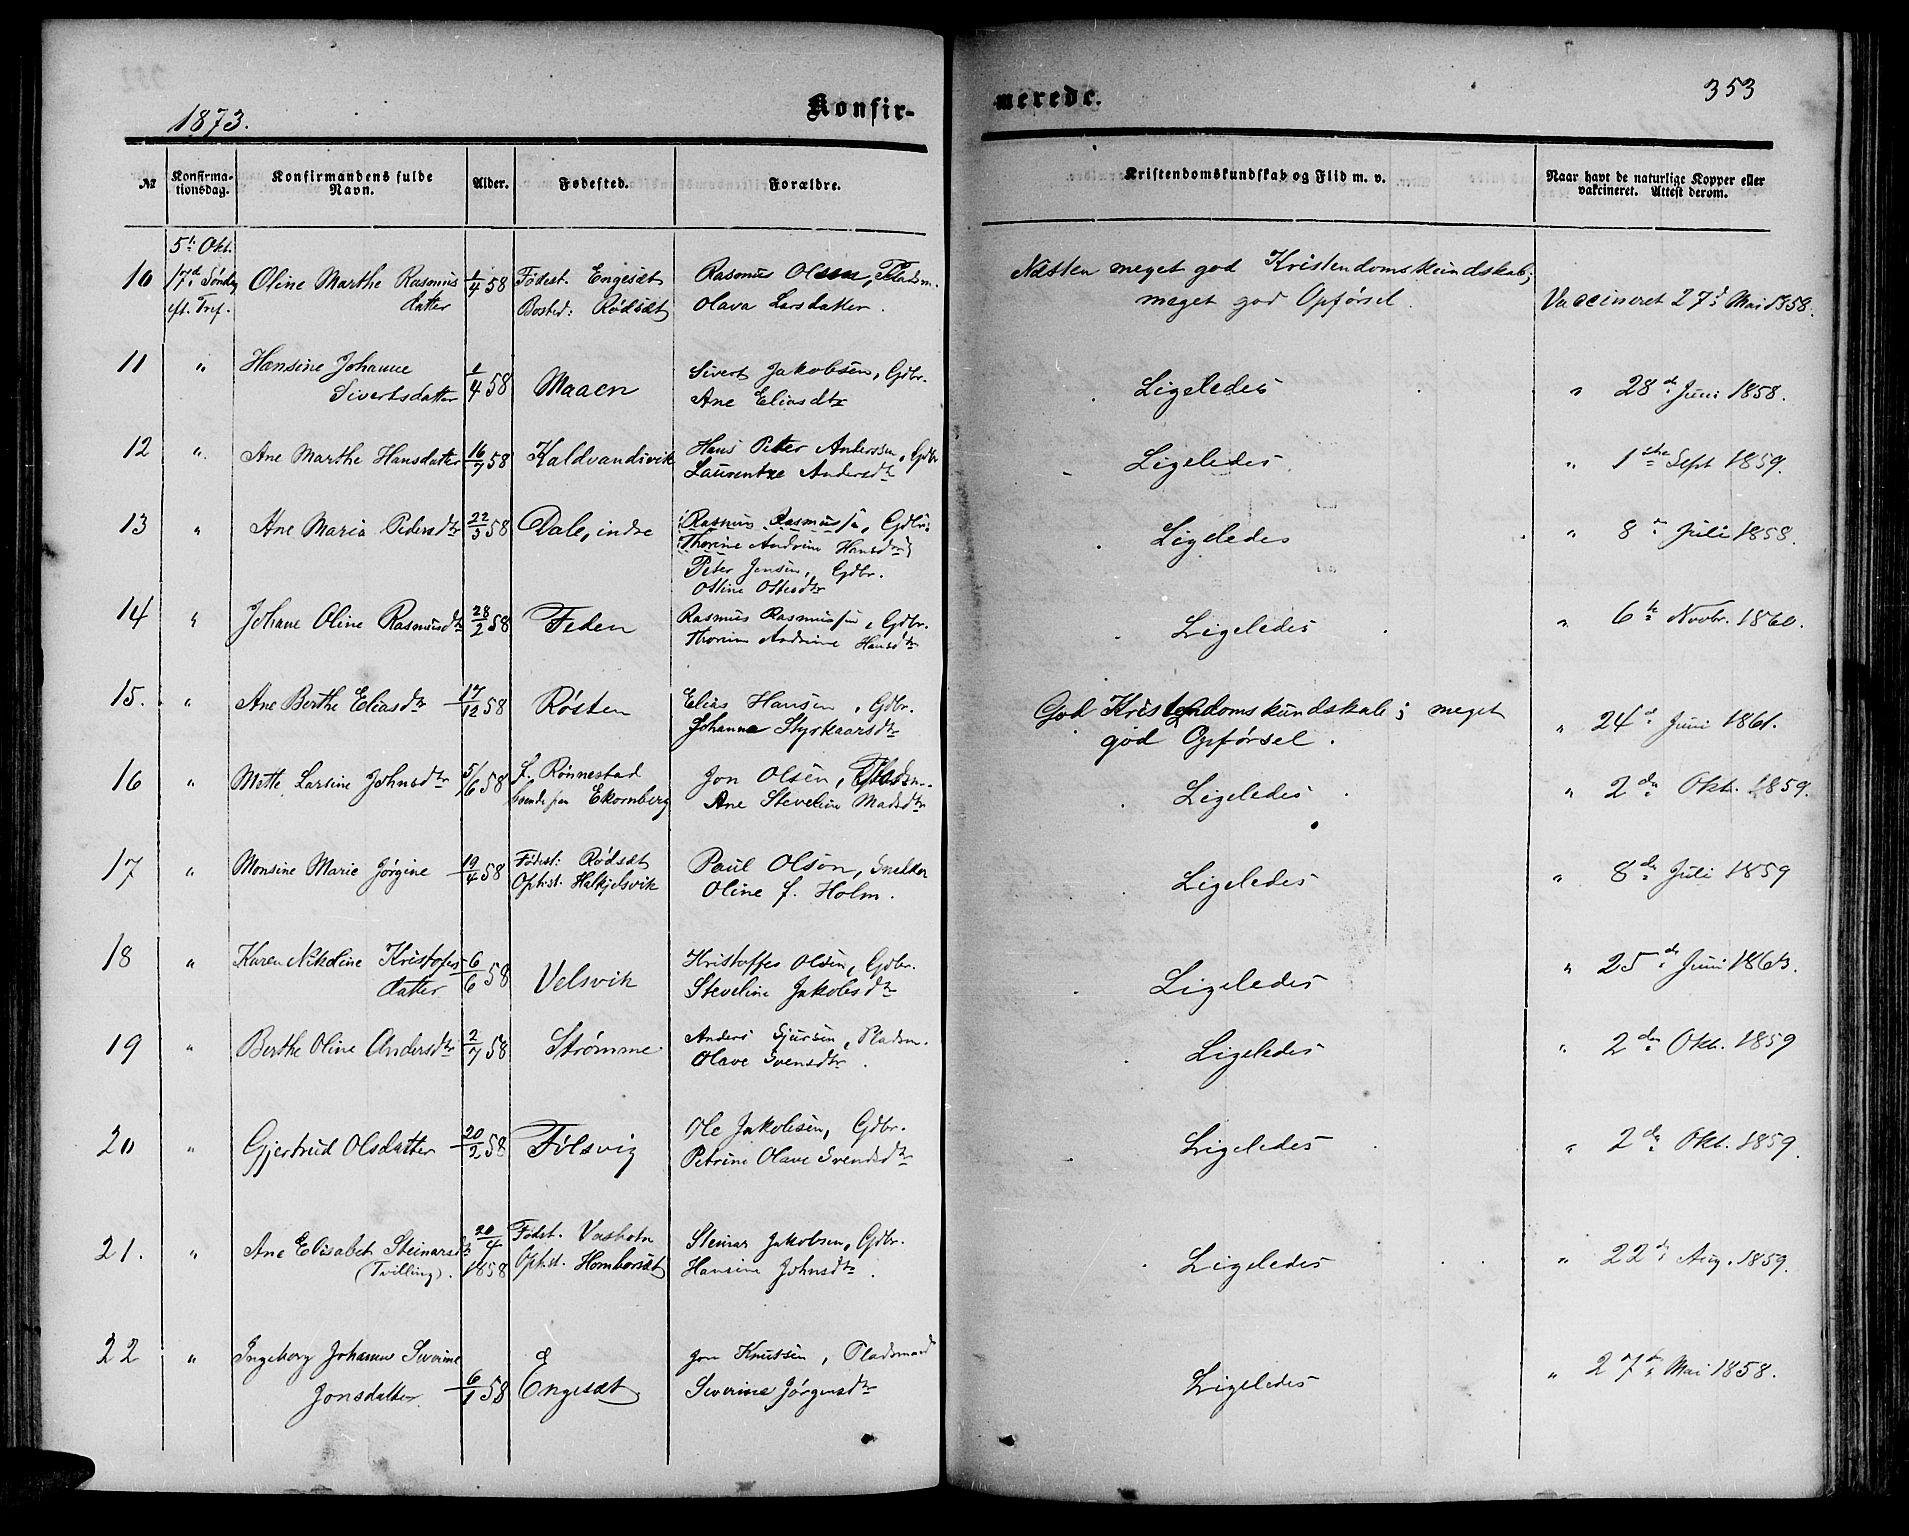 1873.
Konfir-
merede.
353
№
Konfirma-
tionsdag.
Konfirmandens fulde
Navn.
Alder.
Fødested.
Forældre.
Kristendomskundskab og Flid m. v.
Naar havt de naturlige Kopper eller
vakcineret. Attest derom.
10 5te Okt.
17d Søndag
eft. Tref.
Oline Marthe Rasmus
datter
1/4 58
Fødest. Engesæt
Bosted: Rødsæt
Rasmus Olsen, Pladsm.
Olava Larsdatter.
Næsten meget god Kristendomskundskab;
meget god Opførsel.
Vaccineret 27d Mai 1858.
11 "
Hansine Johanne
Sivertsdatter
1/4 58
Maaen
Sivert Jakobsen, Gdbr.
Ane Eliasdtr
Ligeledes
" 28de Juni 1858.
12 " Ane Marthe Hansdatter 16/7 58 Kaldvandsvik
Hans Petter Anderssen, Gdbr
Laurentze Andersdtr
Ligeledes
" 1ste Sept 1859.
13 " Ane Maria Pedersdtr 22/5 58 Dale, indre
(Rasmus Rasmussen, Gdbr.
Thorine Andrine Hansdtr)
Peter Jensen, Gdbr.
Olline Ottesdtr
Ligeledes
" 8de Juli 1858.
14 " Johane Oline Rasmusdtr 28/2 58 Feden
Rasmus Rasmussen, Gdbr.
Thorine Andrine Hansdtr
Ligeledes
" 6te Novbr. 1860.
15. " Ane Berthe Eliasdtr 17/12 58 Røsten
Elias Hansen, Gdbr.
Johanne Styrkaarsdtr
God Kristendomskundskab; meget
god Opførsel.
" 24d Juni 1861.
16 " Mette Larsine Johnsdtr 5/6 58
f. Rønnestad
boende paa Ekornberg
Jon Olsen, Pladsm.
Ane Steveline Madsdtr
Ligeledes
" 2den Okt. 1859.
17 " Monsine Marie Jørgine 19/4 58
Fødest: Rødsæt
Ophst. Halkjelsvik
Paul Olsøn, Snelker
Oline f. Holm.
Ligeledes
" 8de Juli 1859
18 " Karen Nikoline Kristofers
datter
6/6 58
Velsvik
Kristoffer Olsen, Gdbr.
Steveline Jakobsdtr
Ligeledes
" 25de Juni 1863.
19 " Berthe Oline Andersdtr 2/7 58 Strømme
Anders Sjursen, Pladsm.
Olave Svensdtr.
Ligeledes
" 2den Okt. 1859
20 " Gjertrud Olsdatter 20/2 58 Følsvig
Ole Jakobsen, Gdbr.
Petrine Olave Svendsdtr
Ligeledes
" 2den Okt. 1859.
21. " Ane Elisabet Steinarsdtr
(Tvilling).
20/4 1858
Fødst. Vasbotn
Ophst. Homborsæt
Steinar Jakobsen, Gdbr.
Hansine Johnsdtr.
Ligeledes
" 22d Aug. 1859.
22 " Ingeborg Johanne Severine
Jonsdatter
6/1 58
Engesæt
Jon Knutsen, Pladsmand
Severine Jørgensdtr
Ligeledes
" 27de Mai 1858.